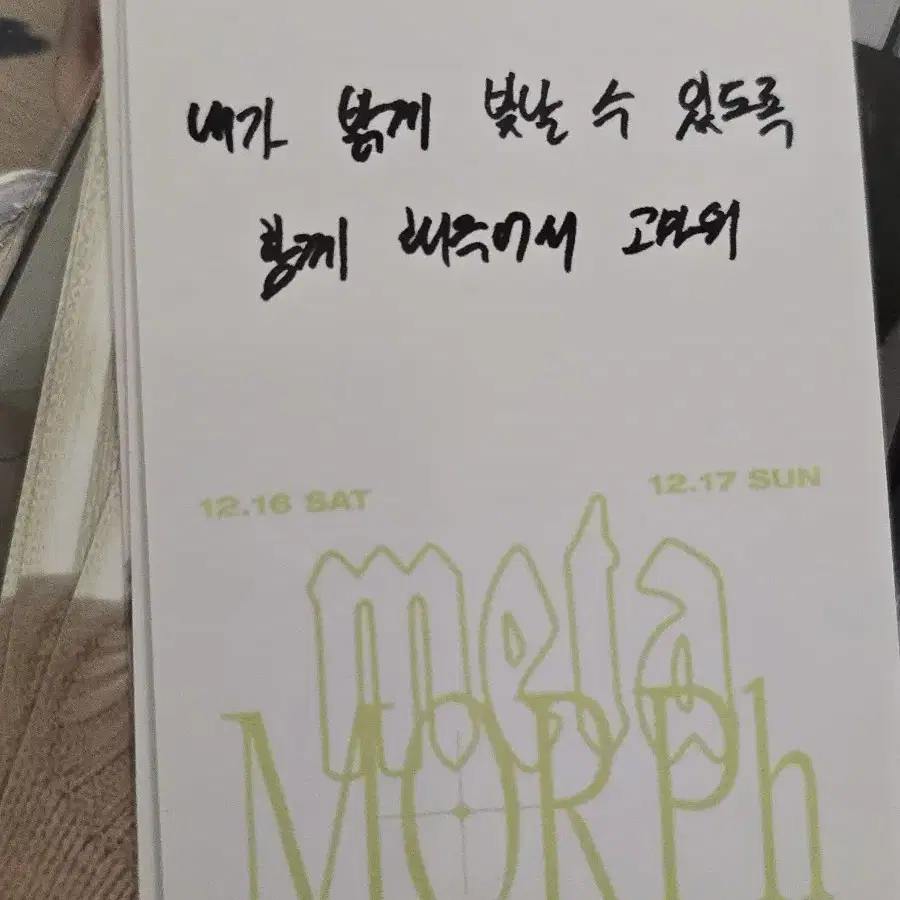 내가 밝게 빛날 수 있도록
함께 해주어서 고마워
12.16 SAT
12.17 SUN
meta
MORPh